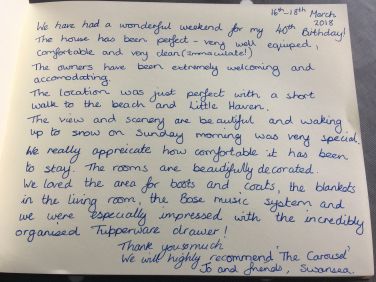 16th-18th March
2018
We have had a wonderful weekend for my 40th Birthday!
The house has been perfect - very well equiped,
comfortable and very clean (immaculate!)
The owners have been extremely welcoming and
accomodating.
The location was just perfect with a short
walk to the beach and Little Haven.
The view and scenery are beautiful and waking
up to snow on Sunday morning was very special.
We really appreicate how comfortable it has been
to stay. The rooms are beautifully decorated.
We loved the area for boots and coats, the blankets
in the living room, the Bose music system and
we were especially impressed with the incredibly
organised Tupperware drawer!
Thank you so much
We will highly recommend 'The Carousel'
Jo and friends, Swansea.